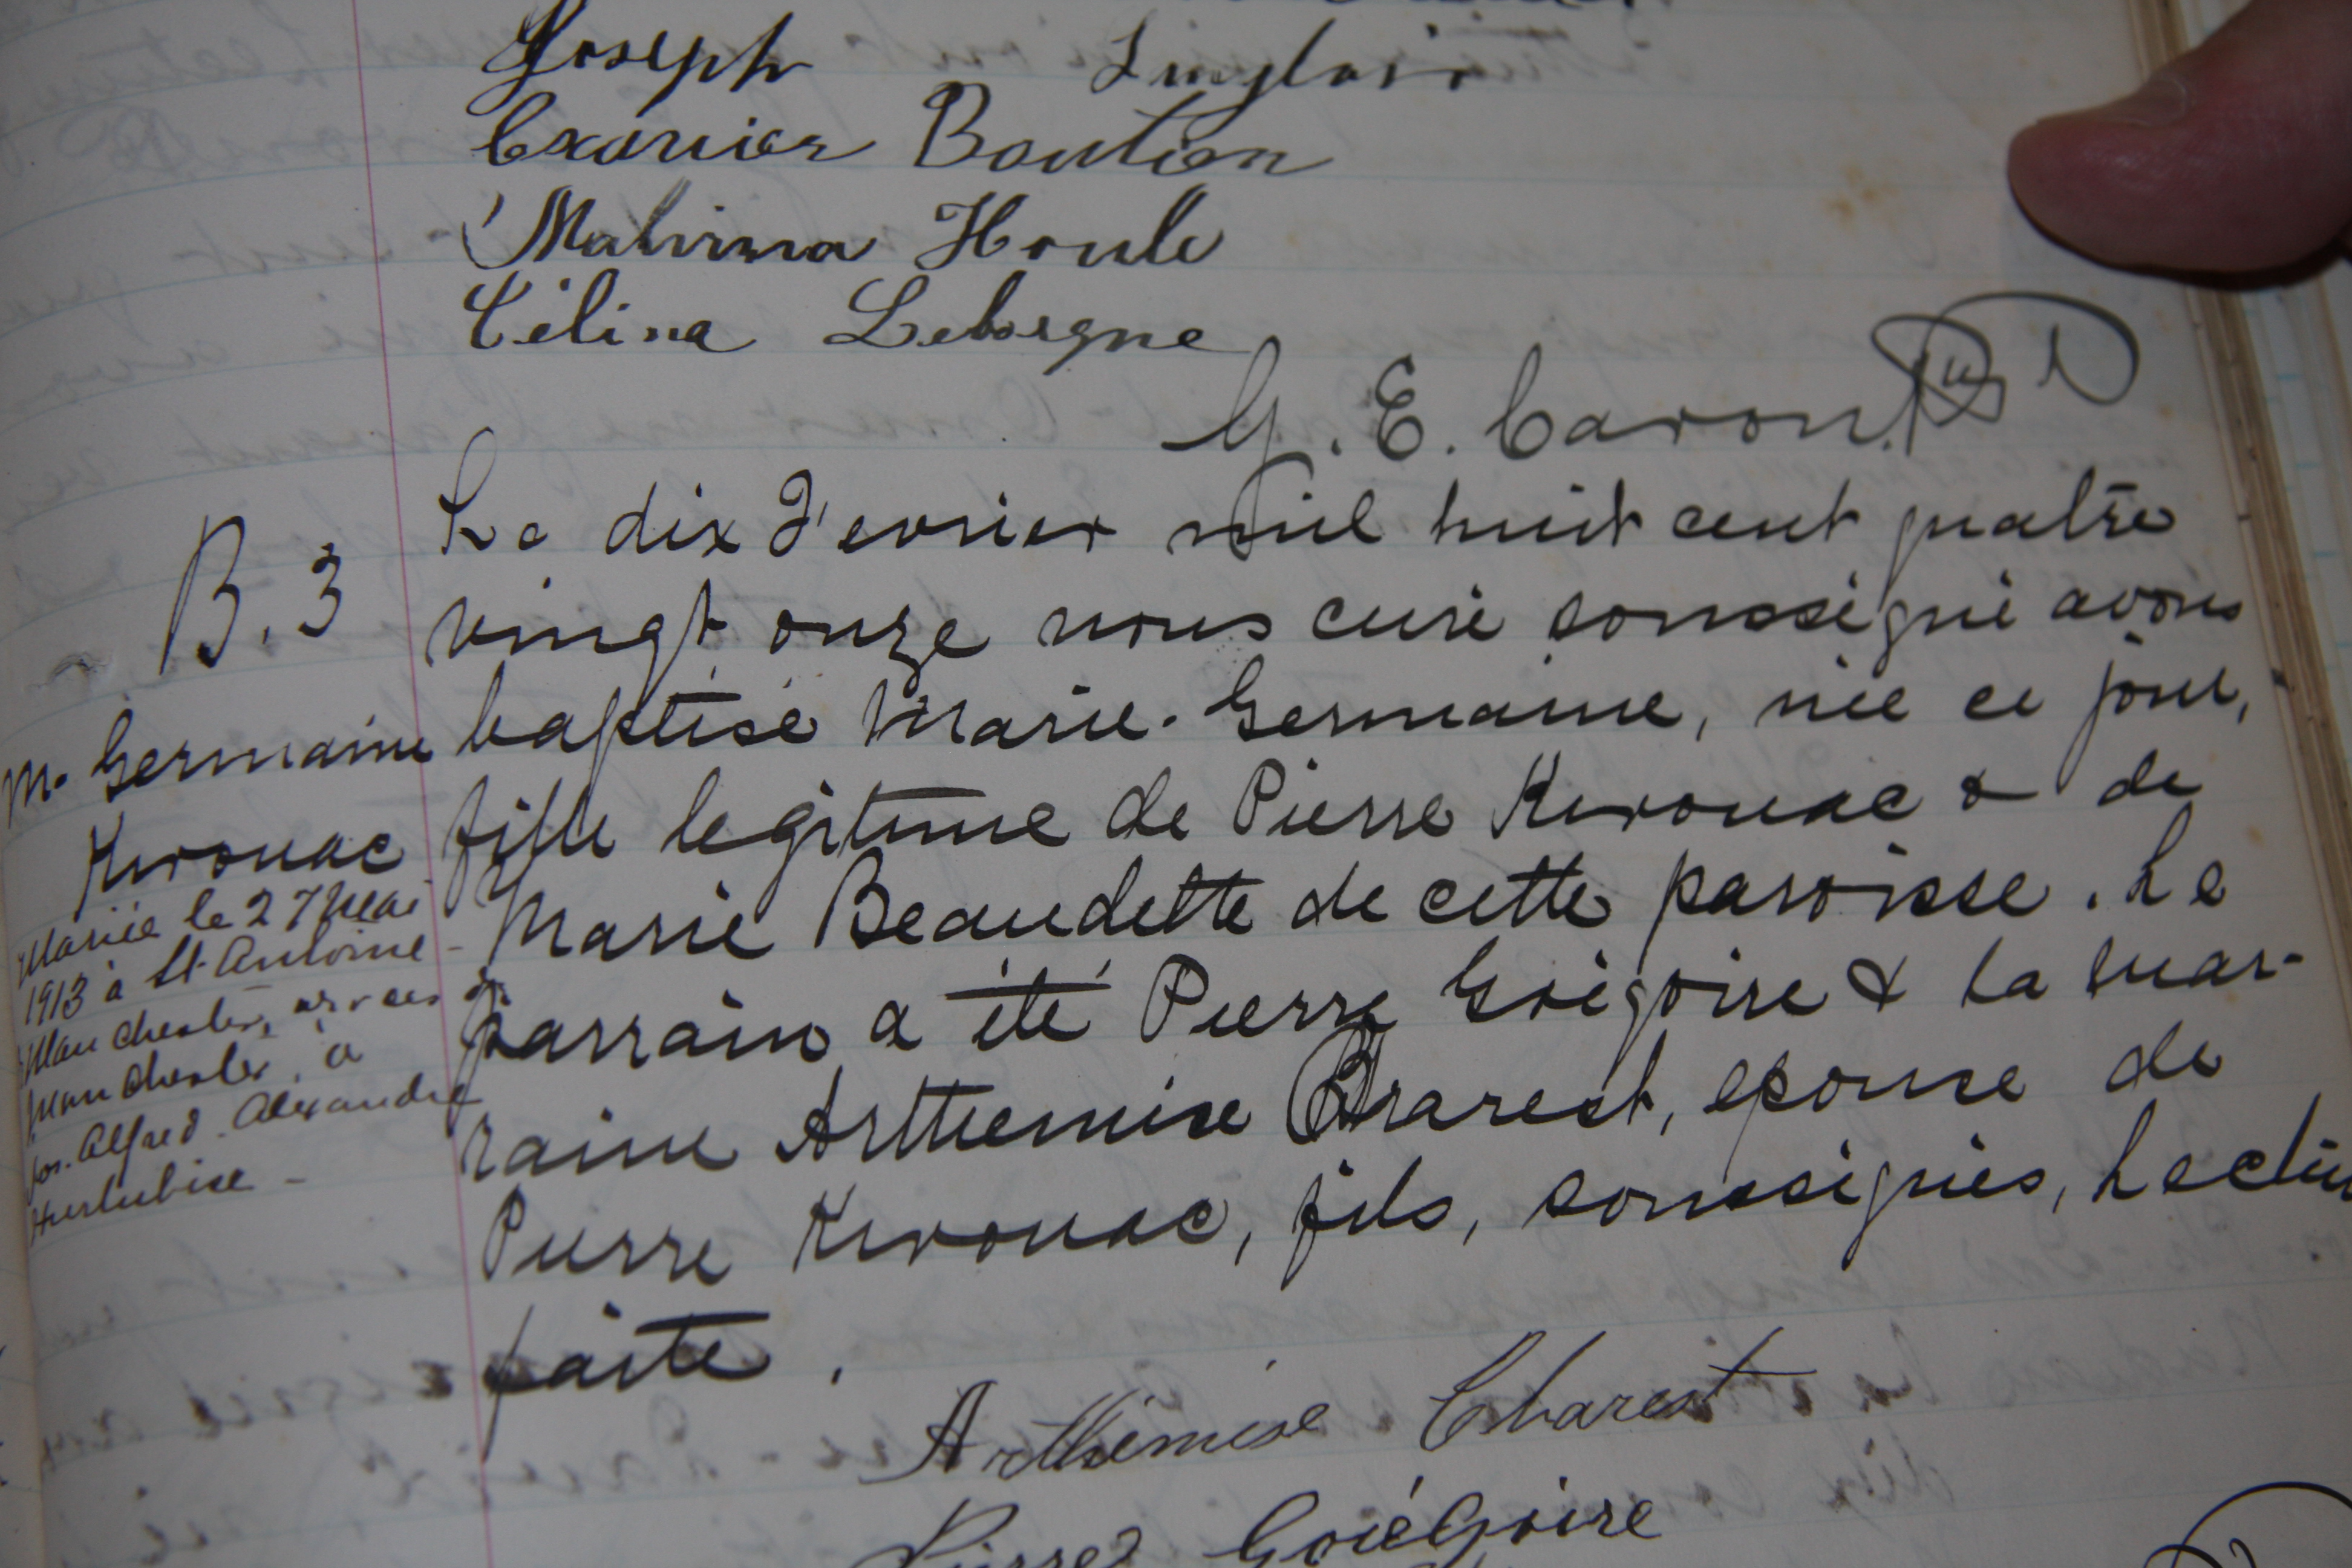 Joseph Langlois
Exavier Boutin
Malvina Houle
Célina Leborgne
G. E. Caron Ptre
B. 3
M. Germaine
Kirouac
Mariée le 27 Mai
1913 à St-Antoine-
Manchester,
Manchester, à
Jos. Alfred-Alexandre
Hurtubise -
Le dix Février mil huit cent quatre
vingt onze nous curé soussigné avons
baptisé Marie-Germaine, née ce jour,
fille légitime de Pierre Kirouac & de
Marie Beaudette de cette paroisse. Le
parrain a été Pierre Grégoire & la mar-
raine Arthemise Charest, epouse de
Pierre Kirouac, fils, soussignés, Lectu
faite.
Arthémise Charest
Pierre Grégoire